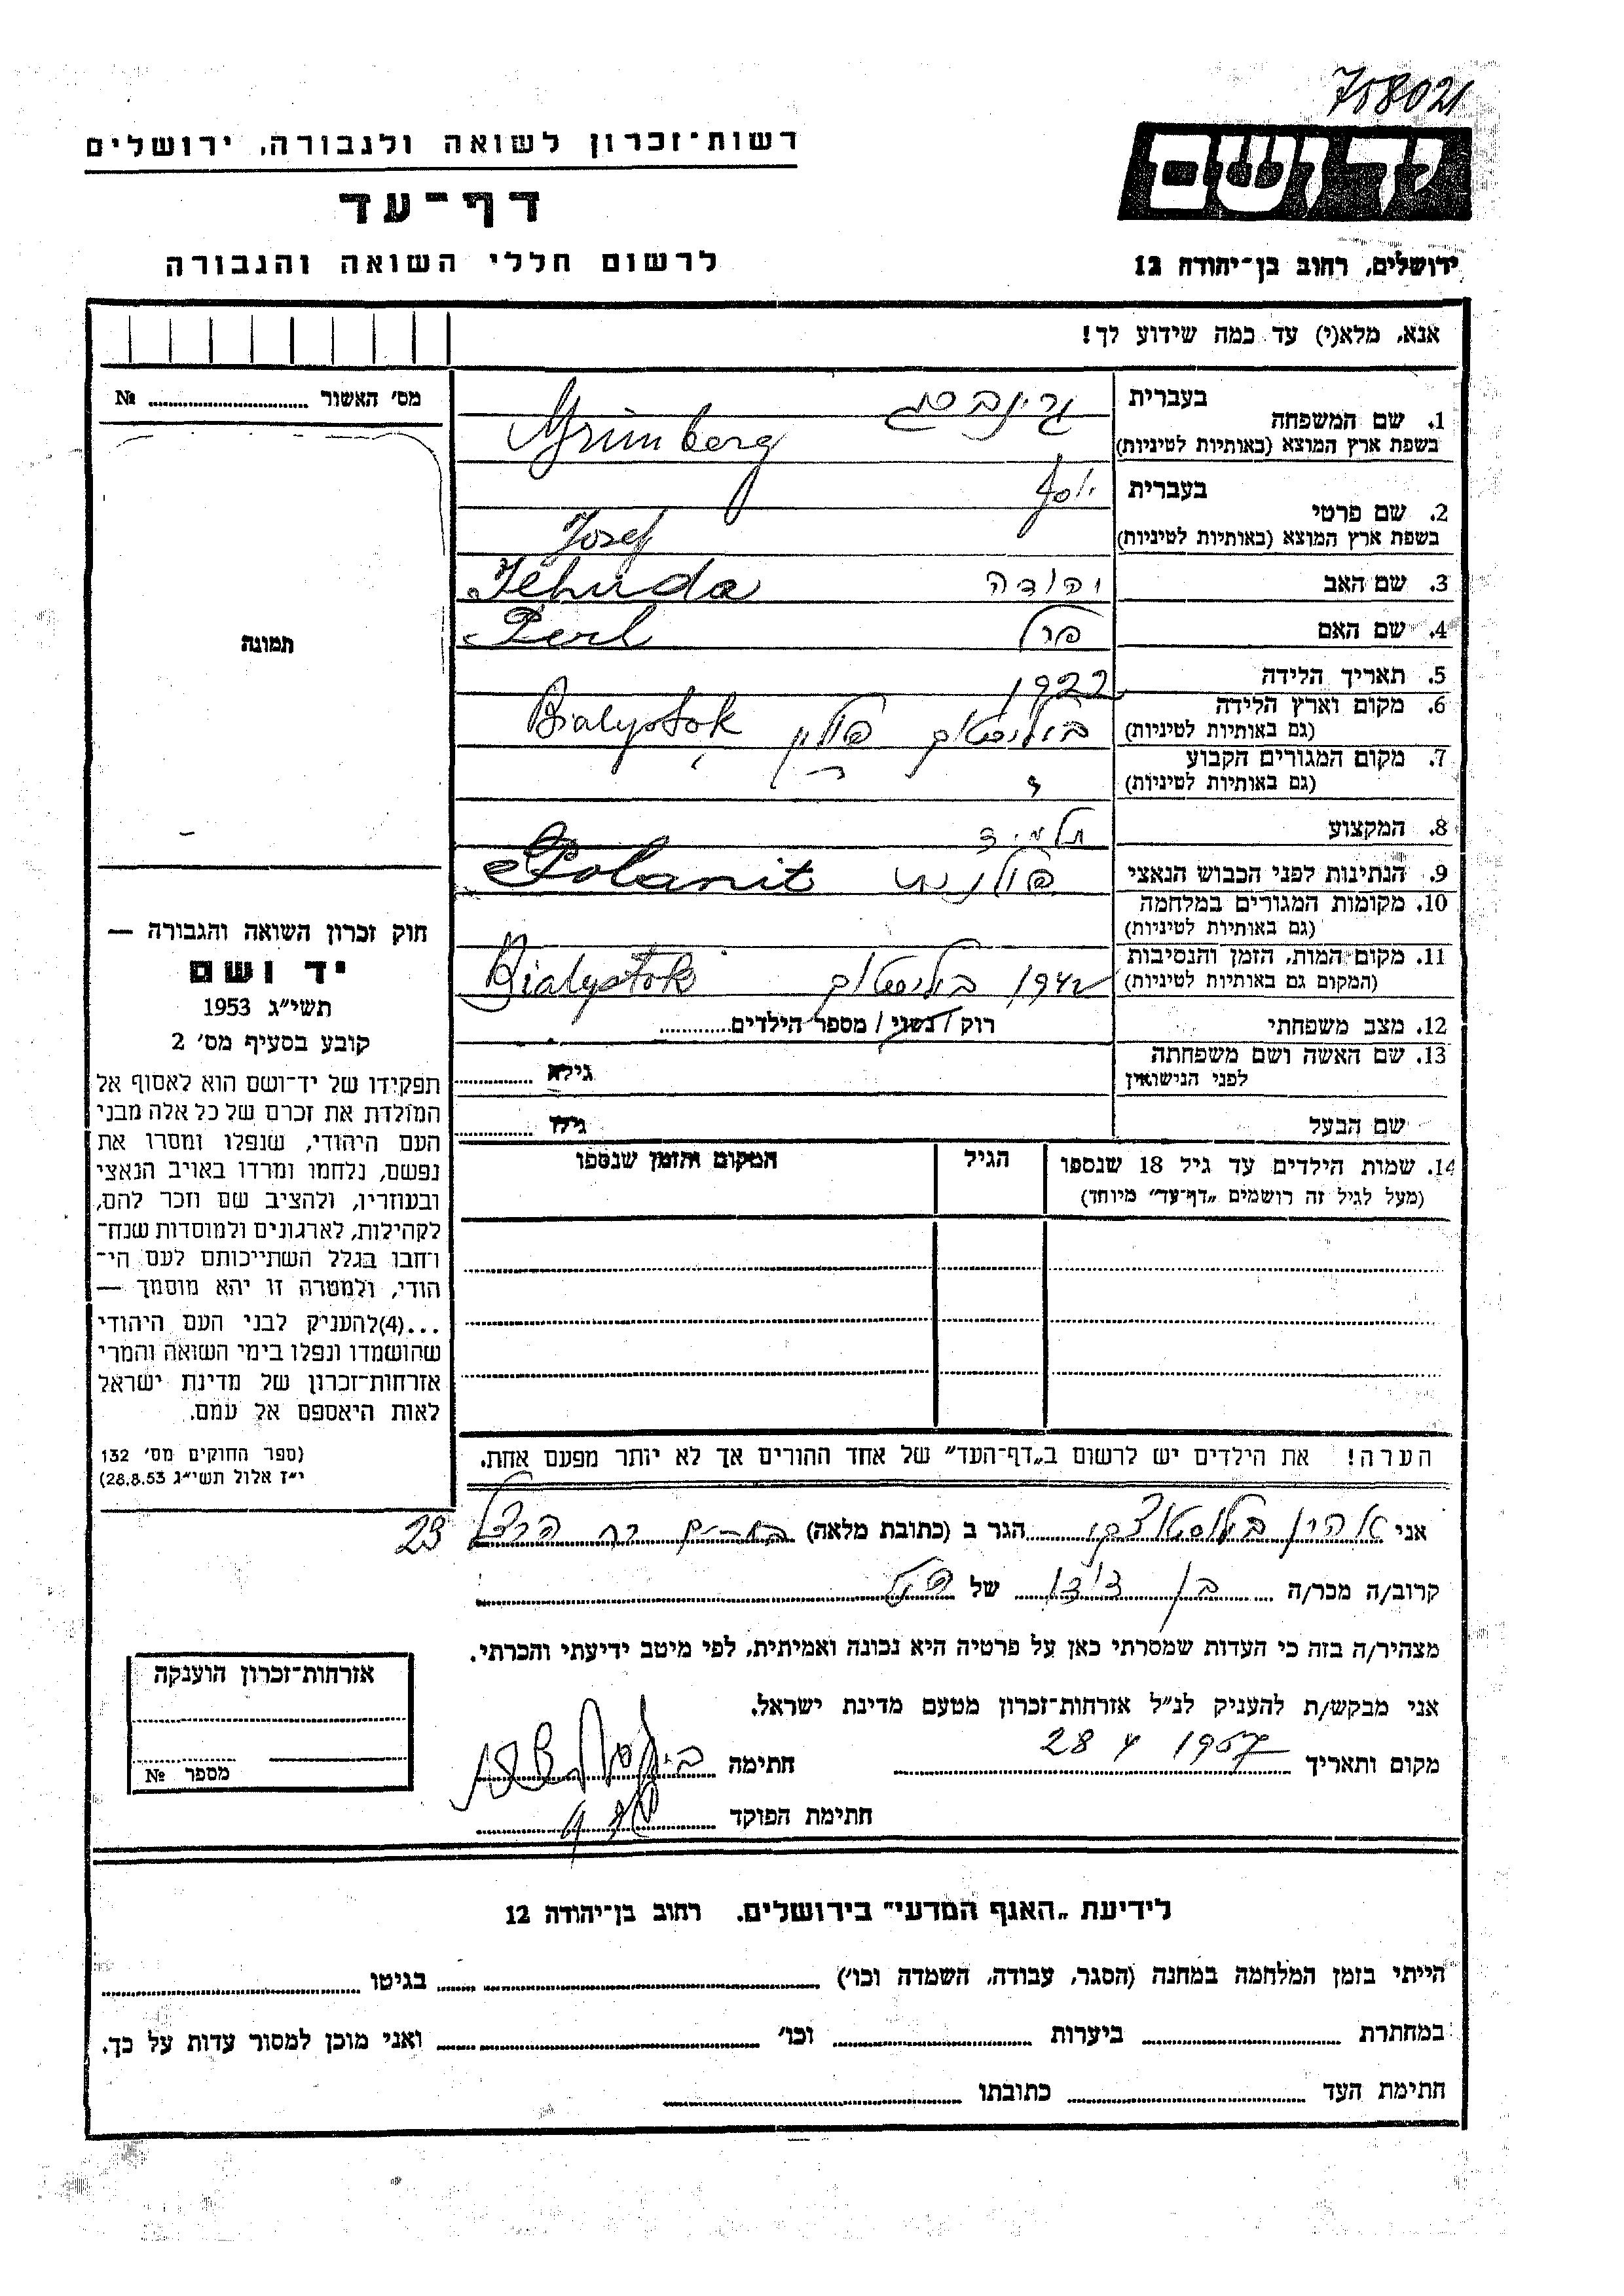 708021
רשות־זכרון לשואה ולגבורה, ירושלים
יד ושם
דף־עד
לרשום חללי השואה והגבורה
ירושלים, רחוב בן־יהודה 12
אנא, מלא(י) עד כמה שידוע לך!
מס׳ האשור № 
תמונה
חוק זכרון השואה והגבורה —
יד ושם
תשי״ג 1953
קובע בסעיף מס׳ 2
תפקידו של יד־ושם הוא לאסוף אל
המולדת את זכרם של כל אלה מבני
העם היהודי, שנפלו ומסרו את
נפשם, נלחמו ומרדו באויב הנאצי
ובעוזריו, ולהציב שם וזכר להם,
לקהילות, לארגונים ולמוסדות שנח־
רחבו בגלל השתייכותם לעם הי־
הודי, ולמטרה זו יהא מוסמך —
...(4)להעניק לבני העם היהודי
שהושמדו ונפלו בימי השואה והמרי
אזרחות־זכרון של מדינת ישראל
לאות היאספם אל עמם.
(ספר החוקים מס׳ 132
י״ז אלול תשי״ג 28.8.53)
1. שם המשפחה בעברית גרינברג
בשפת ארץ המוצא (באותיות לטיניות) Grünberg
2. שם פרטי בעברית יוסף
בשפת ארץ המוצא (באותיות לטיניות) Josef
3. שם האב יהודה Jehuda
4. שם האם פרל Perl
5. תאריך הלידה 1922
6. מקום וארץ הלידה (גם באותיות לטיניות) ביליסטוק פולין Bialystok
7. מקום המגורים הקבוע (גם באותיות לטיניות)
8. המקצוע תלמיד
9. הנתינות לפני הכבוש הנאצי פולנית Polanit
10. מקומות המגורים במלחמה (גם באותיות לטיניות)
11. מקום המות, הזמן והנסיבות (המקום גם באותיות לטיניות) 1942 ביליסטוק Bialystok
12. מצב משפחתי רוק / נשוי / מספר הילדים
13. שם האשה ושם משפחתה לפני הנישואין גילה
שם הבעל גילו
14. שמות הילדים עד גיל 18 שנספו הגיל המקום והזמן שנספו
(מעל לגיל זה רושמים „דף־עד״ מיוחד)
הערה! את הילדים יש לרשום ב„דף־העד״ של אחד ההורים אך לא יותר מפעם אחת.
אני הגר ב (כתובת מלאה) הרצל 23
קרוב/ה מכר/ה בן דוד של
מצהיר/ה בזה כי העדות שמסרתי כאן על פרטיה היא נכונה ואמיתית, לפי מיטב ידיעתי והכרתי.
אני מבקש/ת להעניק לנ״ל אזרחות־זכרון מטעם מדינת ישראל.
מקום ותאריך 28 4 1957 חתימה
חתימת הפוקד
אזרחות־זכרון הוענקה
מספר №
לידיעת „האגף המדעי״ בירושלים, רחוב בן־יהודה 12
הייתי בזמן המלחמה במחנה (הסגר, עבודה, השמדה וכו׳) בגיטו
במחתרת ביערות וכו׳ ואני מוכן למסור עדות על כך.
חתימת העד כתובתו